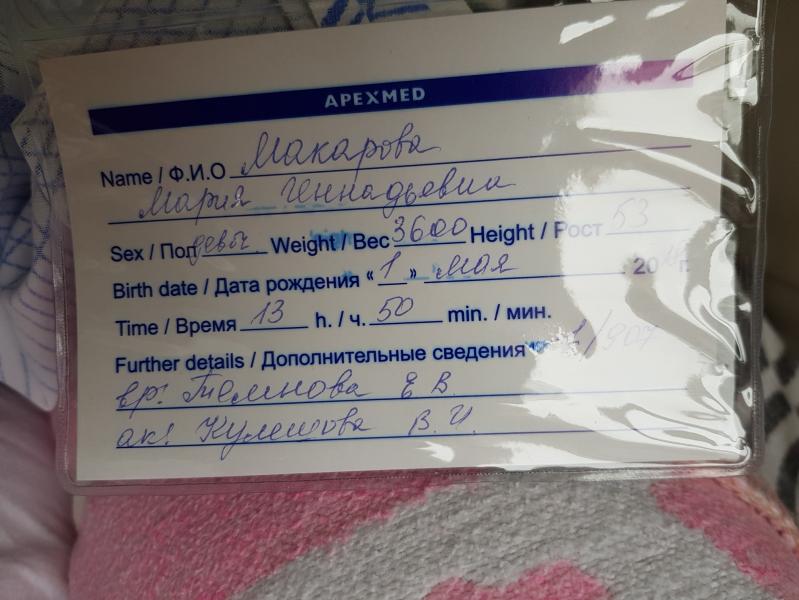 APEXMED
Name / Ф.И.О Макарова
Мария Геннадьевна
Sex / Пол девоч Weight / Вес 3600 Height / Рост 53
Birth date / Дата рождения « 1 » мая 20 г.
Time / Время 13 h. / ч. 50 min. / мин.
Further details / Дополнительные сведения 1/907
вр: Темнова Е В
ак: Кулешова В. И.